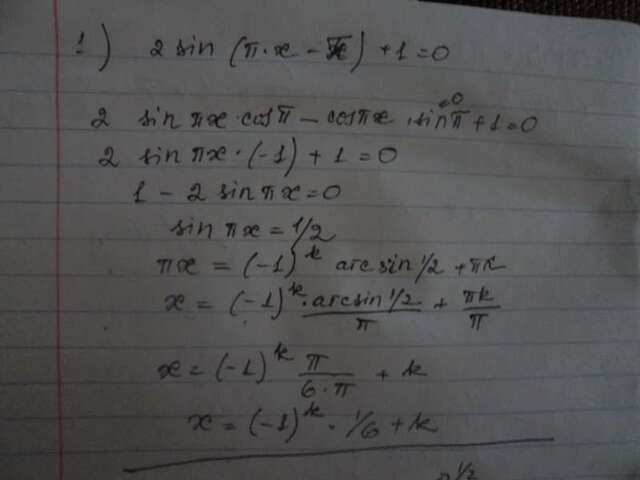 1) 2 sin (π·x - π) + 1 = 0
2 sin πx · cos π - cos πx · sin π + 1 = 0
= 0
2 sin πx · (-1) + 1 = 0
1 - 2 sin πx = 0
sin πx = 1/2
πx = (-1)^k arcsin 1/2 + πk
x = (-1)^k · arcsin 1/2 / π + πk / π
x = (-1)^k π / 6·π + k
x = (-1)^k · 1/6 + k